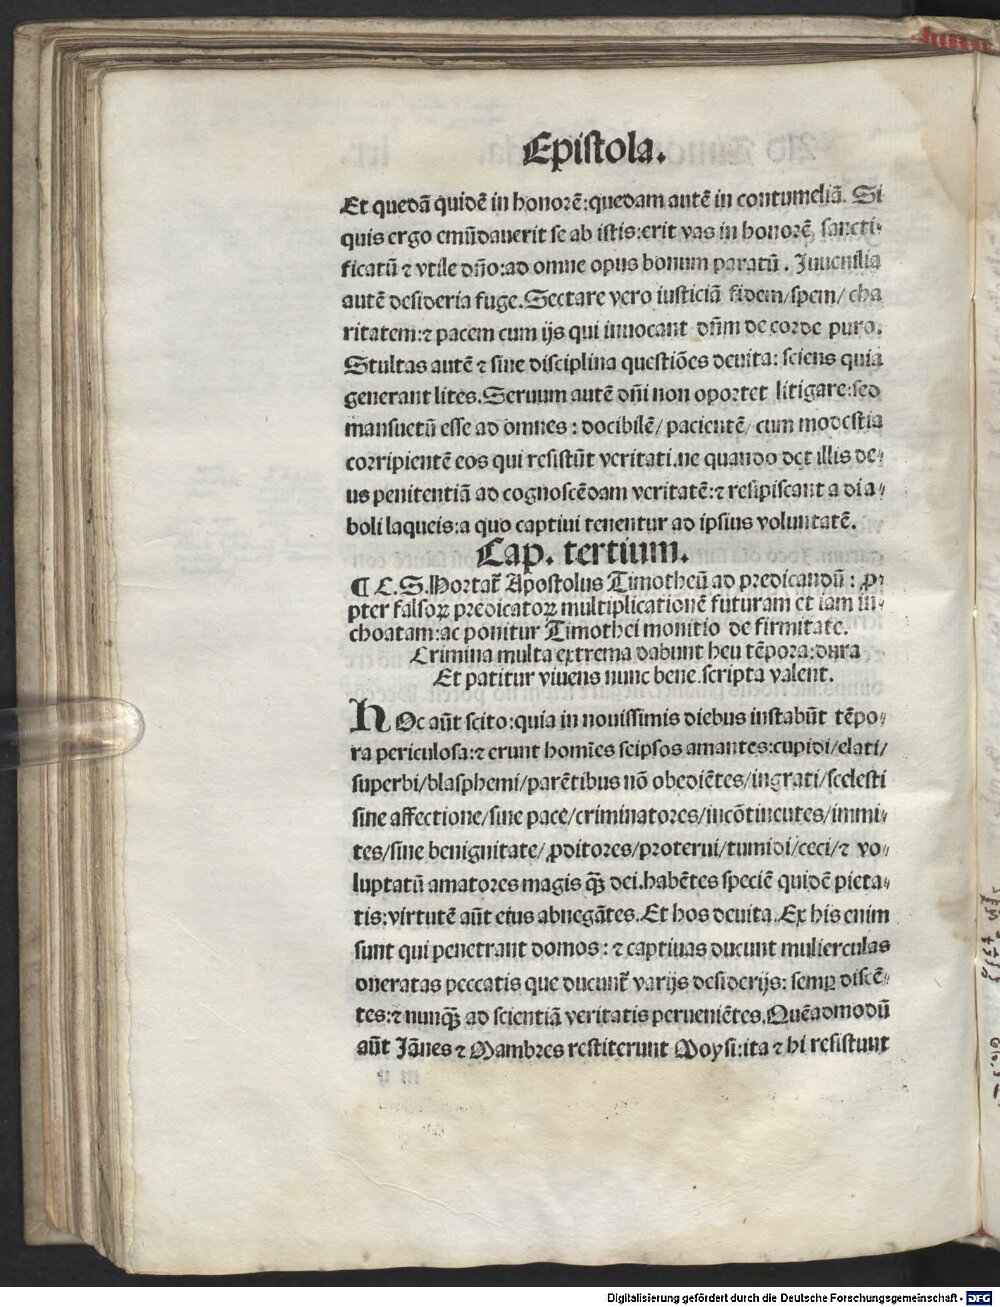 Epistola.
Et quedã quidẽ in honorẽ:quedam autẽ in contumeliã. Si
quis ergo emũdauerit se ab istis:erit vas in honorẽ, sancti⸗
ficatũ ⁊ vtile dño:ad omne opus bonum paratũ. Juuenilia
autẽ desideria fuge. Sectare vero iusticiã fidem/spem/cha
ritatem:⁊ pacem cum ijs qui inuocant dñm de corde puro.
Stultas autẽ ⁊ sine disciplina questiões deuita: sciens quia
generant lites. Seruum autẽ dñi non oportet litigare:sed
mansuetũ esse ad omnes: docibilẽ/ pacientẽ/ cum modestia
corripientẽ eos qui resistũt veritati.ne quando det illis de⸗
us penitentiã ad cognoscẽdam veritatẽ:⁊ resipiscant a dia⸗
boli laqueis:a quo captiui tenentur ad ipsius voluntatẽ.
Cap. tertium.
¶ C.S.Hortat᷑ Apostolus Timotheũ ad predicandũ: ꝓ⸗
pter falsoꝝ predicatoꝝ multiplicationẽ futuram et iam in⸗
choatam:ac ponitur Timothei monitio de firmitate.
Crimina multa extrema dabunt heu tẽpora:dura
Et patitur viuens nunc bene scripta valent.
HOc aũt scito:quia in nouissimis diebus instabũt tẽpo⸗
ra periculosa:⁊ erunt homĩes seipsos amantes:cupidi/elati/
superbi/blasphemi/parẽtibus nõ obediẽtes/ingrati/scelesti
sine affectione/sine pace/criminatores/incõtinentes/immi⸗
tes/sine benignitate/ꝓditores/proterui/tumidi/ceci/⁊ vo⸗
luptatũ amatores magis ꝙ̃ dei.habẽtes speciẽ quidẽ pieta⸗
tis:virtutẽ aũt eius abnegãtes. Et hos deuita. Ex his enim
sunt qui penetrant domos: ⁊ captiuas ducunt mulierculas
oneratas peccatis que ducunt᷑ varijs desiderijs: semꝑ discẽ⸗
tes:⁊ nunꝙ̃ ad scientiã veritatis perueniẽtes. Quẽadmodũ
aũt Jãnes ⁊ Mambres restiterunt Moysi:ita ⁊ hi resistunt
Digitalisierung gefördert durch die Deutsche Forschungsgemeinschaft - DFG